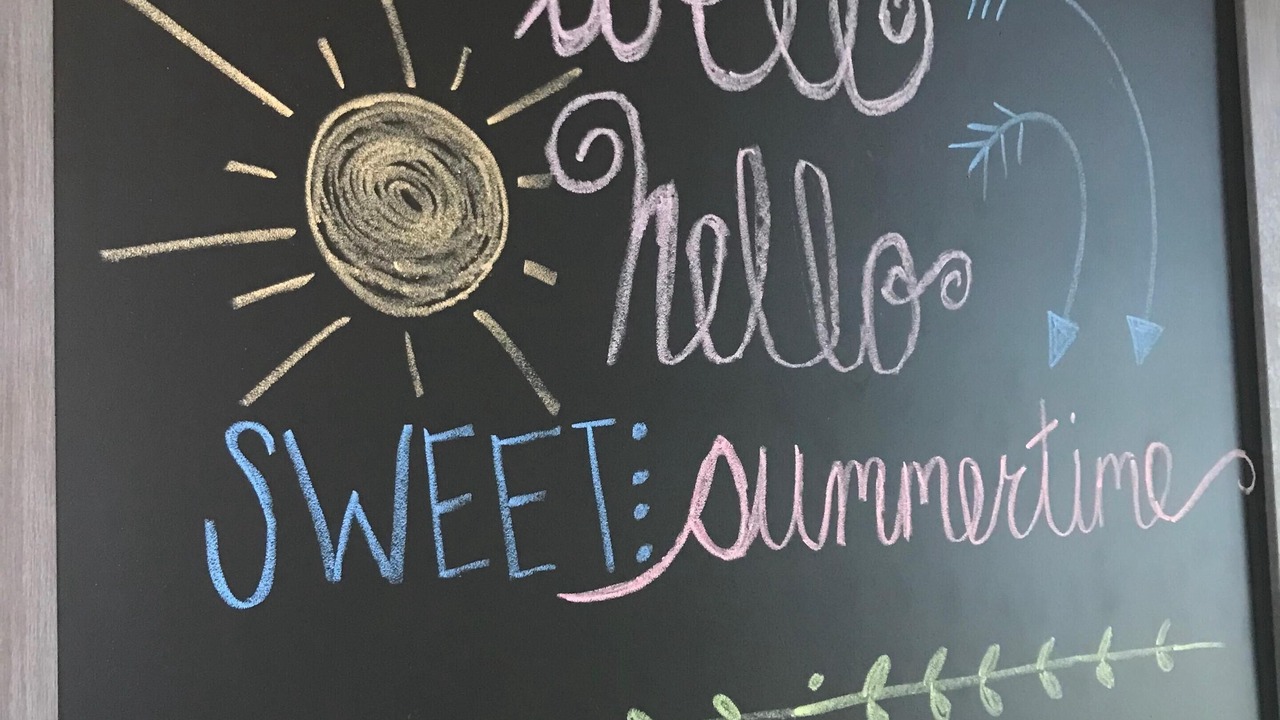 well
hello
SWEET summertime